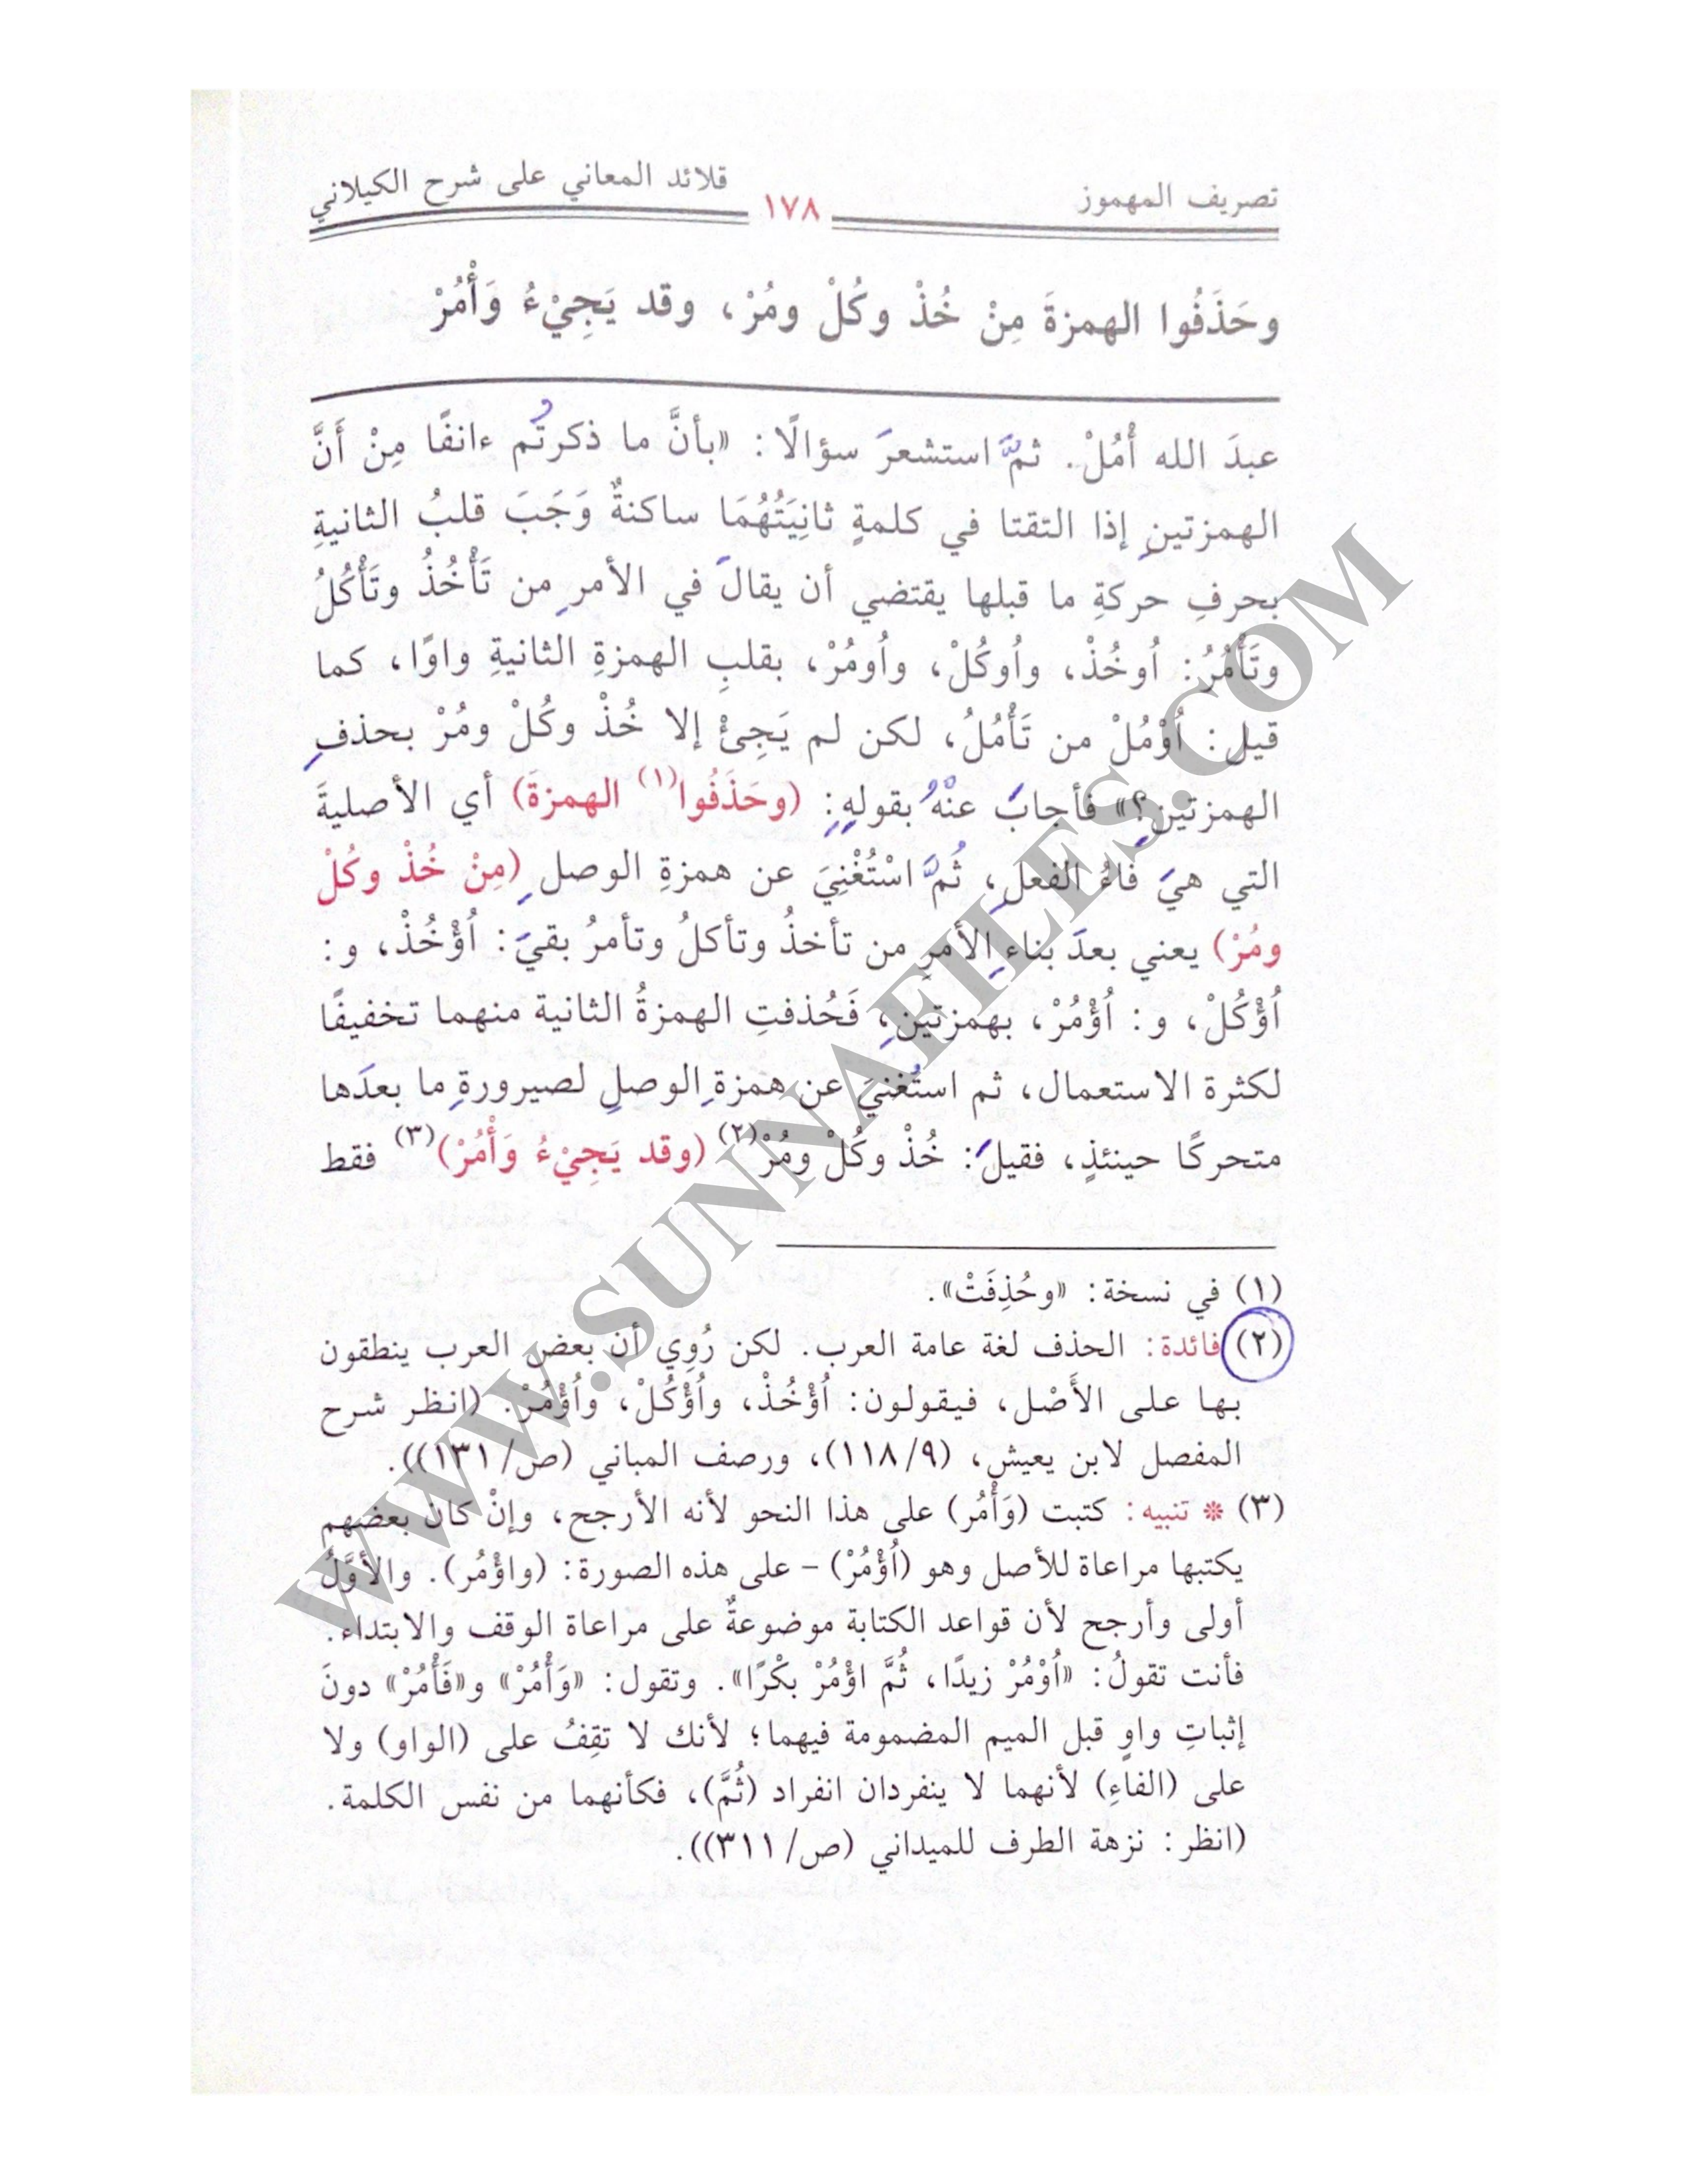 تصريف المهموز ١٧٨ قلائد المعاني على شرح الكيلاني
وحَذَفُوا الهمزةَ مِنْ خُذْ وكُلْ ومُرْ، وقد يَجِيْءُ وَأْمُرْ
عبدَ الله أُمُلْ. ثمَّ استشعرَ سؤالًا: «بأنَّ ما ذكرتُم ءانفًا مِنْ أَنَّ
الهمزتينِ إذا التقتا في كلمةٍ ثانِيَتُهُمَا ساكنةٌ وَجَبَ قلبُ الثانيةِ
بحرفِ حركةِ ما قبلها يقتضي أن يقالَ في الأمرِ من تَأْخُذُ وتَأْكُلُ
وتَأْمُرُ: اُوخُذْ، واُوكُلْ، واُومُرْ، بقلبِ الهمزةِ الثانيةِ واوًا، كما
قيل: اُوْمُلْ من تَأْمُلُ، لكن لم يَجِئْ إلا خُذْ وكُلْ ومُرْ بحذفِ
الهمزتينِ؟» فأجابَ عنْهُ بقولهِ: (وحَذَفُوا(١) الهمزةَ) أي الأصليةَ
التي هيَ فاءُ الفعلِ، ثُمَّ اسْتُغْنِيَ عن همزةِ الوصلِ (مِنْ خُذْ وكُلْ
ومُرْ) يعني بعدَ بناءِ الأمرِ من تأخذُ وتأكلُ وتأمرُ بقيَ: اُؤْخُذْ، و:
اُؤْكُلْ، و: اُؤْمُرْ، بهمزتينِ، فَحُذفتِ الهمزةُ الثانية منهما تخفيفًا
لكثرة الاستعمال، ثم استُغنيَ عن همزةِ الوصلِ لصيرورةِ ما بعدَها
متحركًا حينئذٍ، فقيلَ: خُذْ وكُلْ ومُرْ(٢) (وقد يَجِيْءُ وَأْمُرْ)(٣) فقط
(١) في نسخة: «وحُذِفَتْ».
(٢) فائدة: الحذف لغة عامة العرب. لكن رُوِي أن بعض العرب ينطقون
بها على الأَصْل، فيقولون: اُؤْخُذْ، واُؤْكُلْ، واُؤْمُرْ. (انظر شرح
المفصل لابن يعيش، (٩/١١٨)، ورصف المباني (ص/١٣١)).
(٣) * تنبيه: كتبت (وَأْمُر) على هذا النحو لأنه الأرجح، وإنْ كان بعضهم
يكتبها مراعاة للأصل وهو (اُؤْمُرْ) – على هذه الصورة: (واؤْمُر). والأوَّلُ
أولى وأرجح لأن قواعد الكتابة موضوعةٌ على مراعاة الوقف والابتداء.
فأنت تقولُ: «اُوْمُرْ زيدًا، ثُمَّ اؤْمُرْ بكْرًا». وتقول: «وَأْمُرْ» و«فَأْمُرْ» دونَ
إثباتِ واوٍ قبل الميم المضمومة فيهما؛ لأنك لا تقِفُ على (الواو) ولا
على (الفاءِ) لأنهما لا ينفردان انفراد (ثُمَّ)، فكأنهما من نفس الكلمة.
(انظر: نزهة الطرف للميداني (ص/٣١١)).
WWW.SUNNAFILES.COM